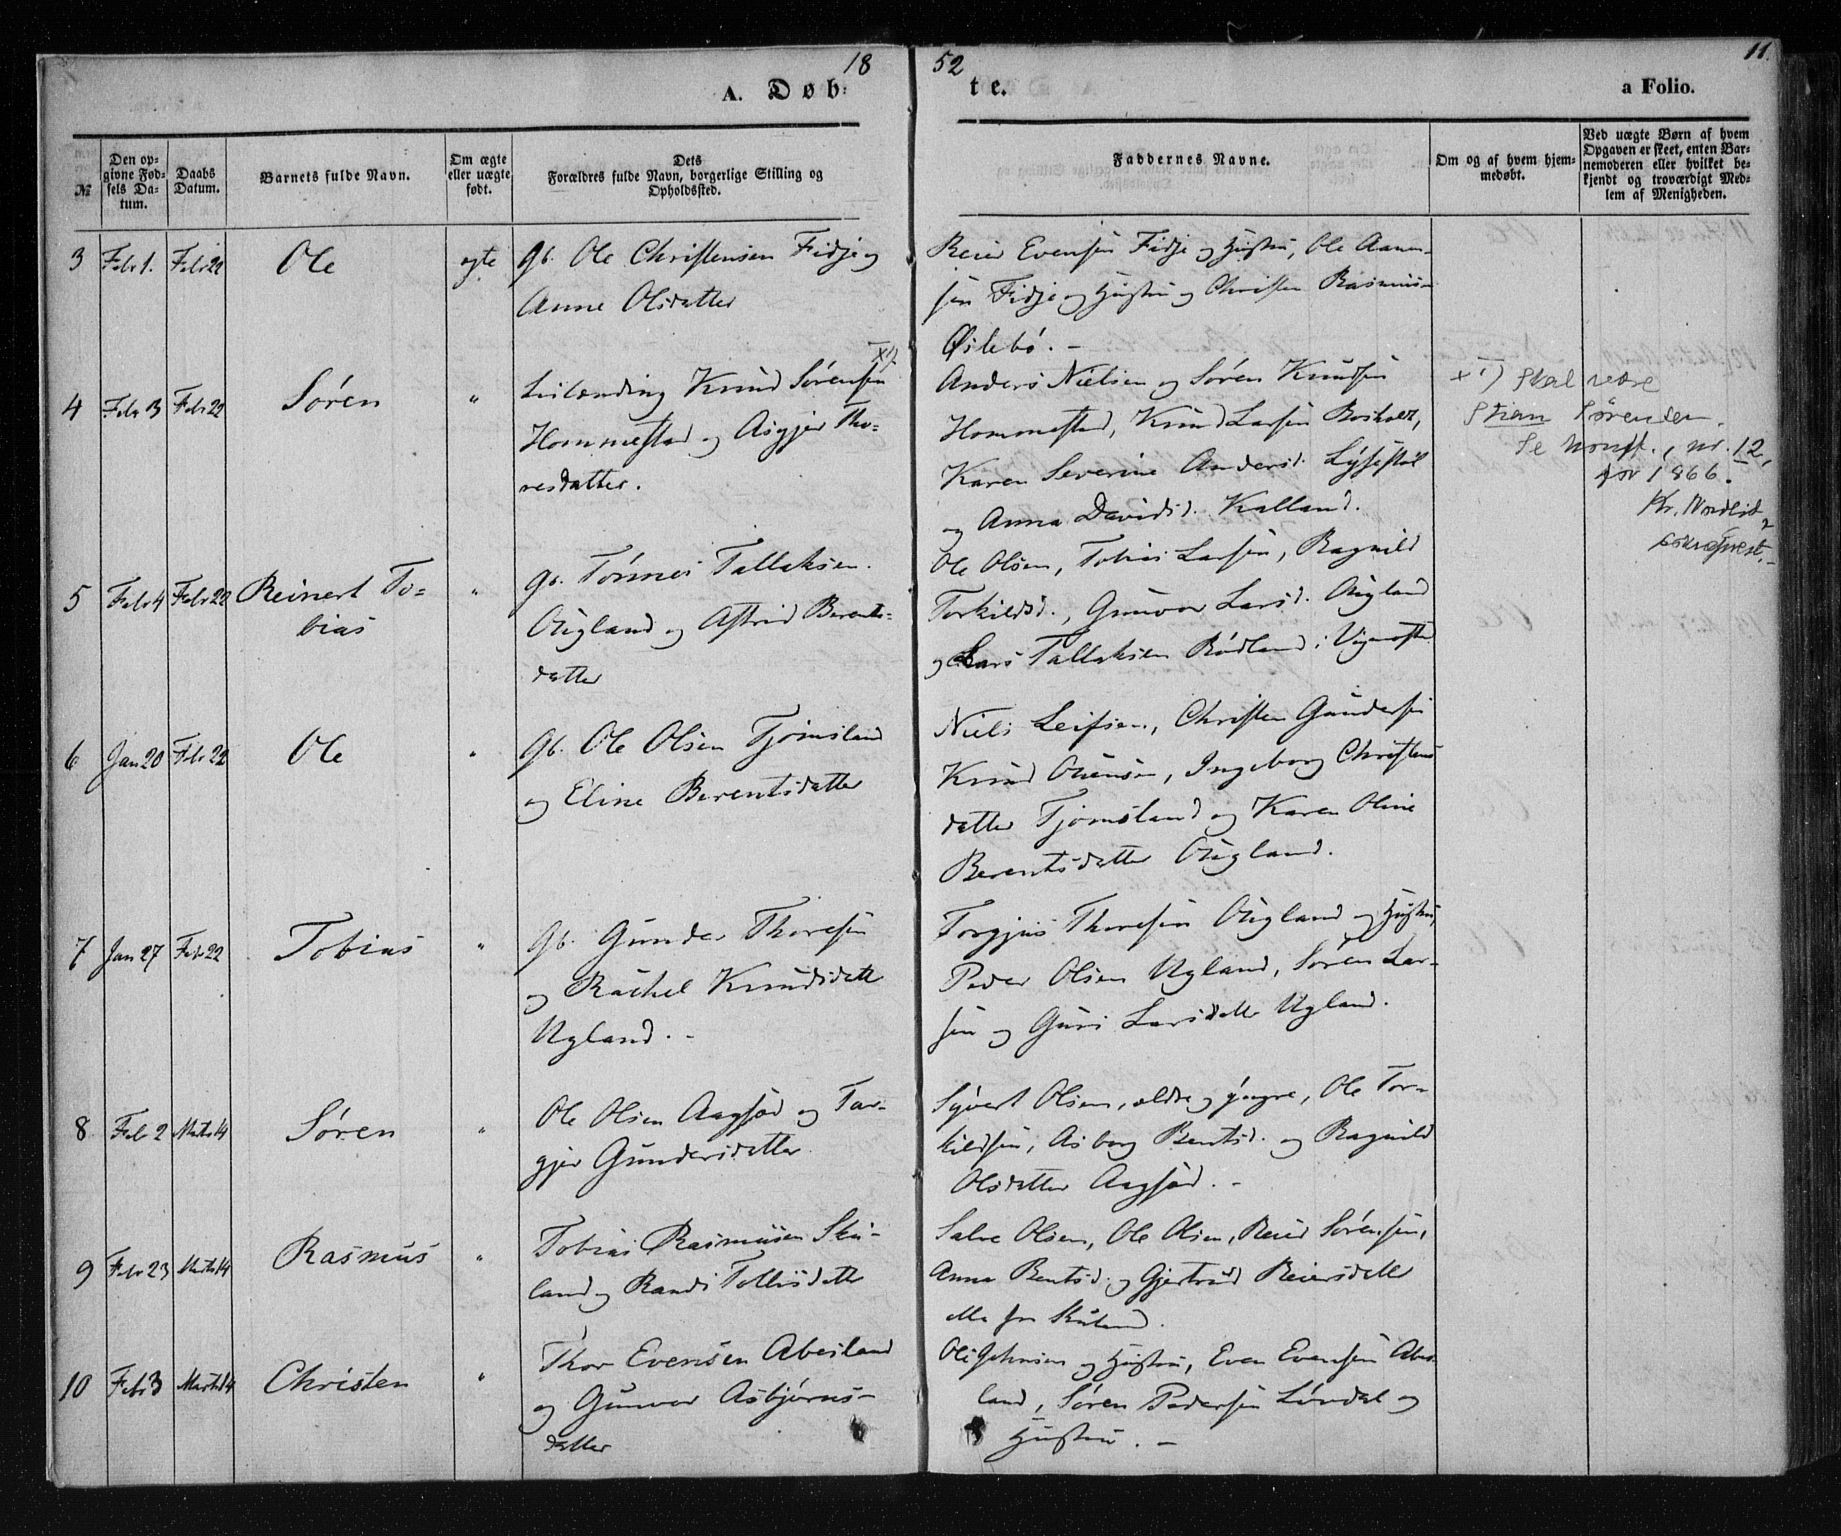 18 52
11.
A. Døb-
te.
a Folio.
№
Den opgivne Fødsels Datum.
Daabs Datum.
Barnets fulde Navn.
Om ægte eller uægte født.
Dets
Forældres fulde Navn, borgerlige Stilling og
Opholdssted.
Faddernes Navne.
Om og af hvem hjemmedøbt.
Ved uægte Børn af hvem
Opgaven er skeet, enten Bar-
nemoderen eller hvilket be-
kjendt og troværdigt Med-
lem af Menigheden.
3 Febr 1. Febr 22 Ole egte
Gb. Ole Christensen Fidje og
Anne Olsdatter
Reier Evensen Fidje og Hustru, Ole Aanen-
sen Fidje og Hustru og Christen Rasmussen
Øilebø. -
4 Febr 3 Febr 22 Søren "
Leilænding Knud Sørensen x1)
Hommestad og Asgjer Tho-
resdatter.
Anders Nielsen og Søren Knudsen
Hommestad, Knud Larsen
Karen Severine Andersd.
og Anna Davidsd. Kalland.
x1) skal være
Stian Sørensen.
Se konf., nr. 12,
for 1866.
5 Febr 4 Febr 22 Reinert To-
bias "
Gb. Tønnes Tallaksen
Øugland og Astrid Berents-
datter
Ole Olsen, Tobias Larsen, Ragnild
Torkildsd., Gunvor Larsd. Øugland
og Lars Tallaksen Rødland i
6 Jan 20 Febr 22 Ole "
Gb. Ole Olsen Tjomsland
og Eline Berentsdatter
Niels Leifsen, Christen Gundersen
Knud Ounsen, Ingeborg Christens
datter Tjomsland og Karen Oline
Berentsdatter Øugland.
7 Jan 27 Febr 22 Tobias "
Gb. Gunder Thoresen
og Rachel Knudsdatt
Ugland. -
Torgjus Thoresen Øugland og Hustru,
Peder Olsen Ugland, Søren Lar-
sen og Guri Larsdatter Ugland.
8 Febr 2 Marts 14 Søren "
Ole Olsen Aagsød og Tor-
gjer Gundersdatter
Syvert Olsen, ældre og yngre, Ole Tor-
kildsen, Asborg Bentsd. og Ragnild
Olsdatter Aagsød. -
9 Febr 23 Marts 14 Rasmus "
Tobias Rasmusen Sku-
land og Randi Tollisdatter
Salve Olsen, Ole Olsen, Reier Sørensen,
Anna Bentsd. og Gjertrud Reiersdatter
alle fra Skuland.
10 Febr 3 Marts 14 Christen "
Thor Evensen Abesland
og Gunvor Asbjørns-
datter
Ole Johnsen og Hustru, Even Evensen Abes
land, Søren Pedersen Løvdal og
Hustru. -